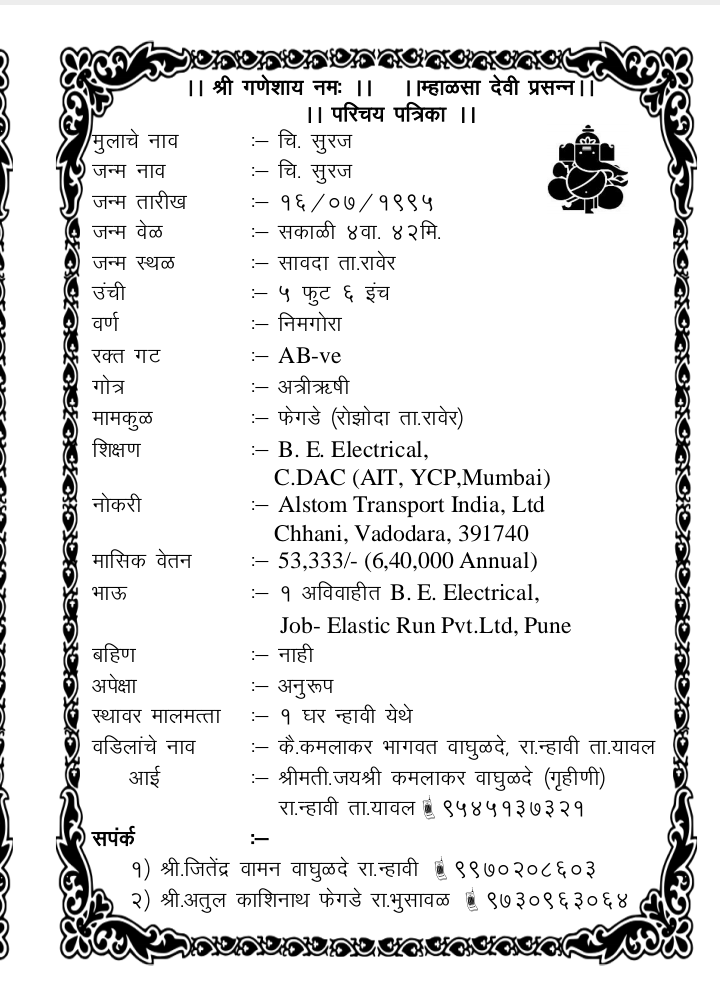 || श्री गणेशाय नमः || ||म्हाळसा देवी प्रसन्न||
|| परिचय पत्रिका ||
मुलाचे नाव :– चि. सुरज
जन्म नाव :– चि. सुरज
जन्म तारीख :– १६/०७/१९९५
जन्म वेळ :– सकाळी ४वा. ४२मि.
जन्म स्थळ :– सावदा ता.रावेर
उंची :– ५ फुट ६ इंच
वर्ण :– निमगोरा
रक्त गट :– AB-ve
गोत्र :– अत्रीऋषी
मामकुळ :– फेगडे (रोझोदा ता.रावेर)
शिक्षण :– B. E. Electrical,
C.DAC (AIT, YCP,Mumbai)
नोकरी :– Alstom Transport India, Ltd
Chhani, Vadodara, 391740
मासिक वेतन :– 53,333/- (6,40,000 Annual)
भाऊ :– १ अविवाहीत B. E. Electrical,
Job- Elastic Run Pvt.Ltd, Pune
बहिण :– नाही
अपेक्षा :– अनुरूप
स्थावर मालमत्ता :– १ घर न्हावी येथे
वडिलांचे नाव :– कै.कमलाकर भागवत वाघुळदे, रा.न्हावी ता.यावल
आई :– श्रीमती.जयश्री कमलाकर वाघुळदे (गृहीणी)
रा.न्हावी ता.यावल ९५४५१३७३२१
सपंर्क :–
१) श्री.जितेंद्र वामन वाघुळदे रा.न्हावी ९९७०२०८६०३
२) श्री.अतुल काशिनाथ फेगडे रा.भुसावळ ९७३०९६३०६४